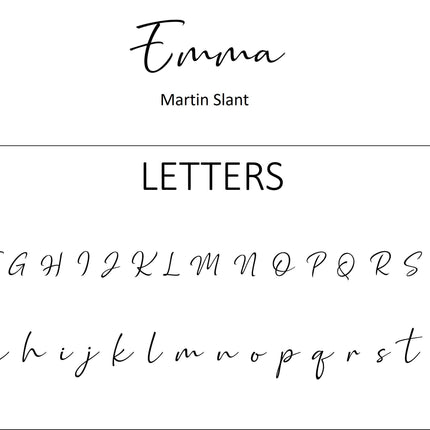 Emma
Martin Slant
LETTERS
G H I J K L M N O P Q R S
h i j k l m n o p q r s t